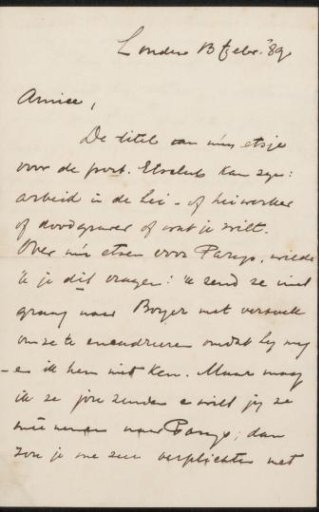 Londen 13 Febr. '89
Amice,
De titel van mijn etsje
voor de port. Etsclub kan zijn:
arbeid in de hei - of heiwerker
of doodgraver of wat je wilt.
Over mijn etsen voor Parijs, wilde
ik je dit vragen: ik zend ze niet
graag naar Boyer met verzoek
om ze te encadreeren omdat hij mij
en ik hem niet ken. Maar mag
ik ze jou zenden & wilt jij ze
mee nemen naar Parijs; dan
zou je me zeer verplichten met